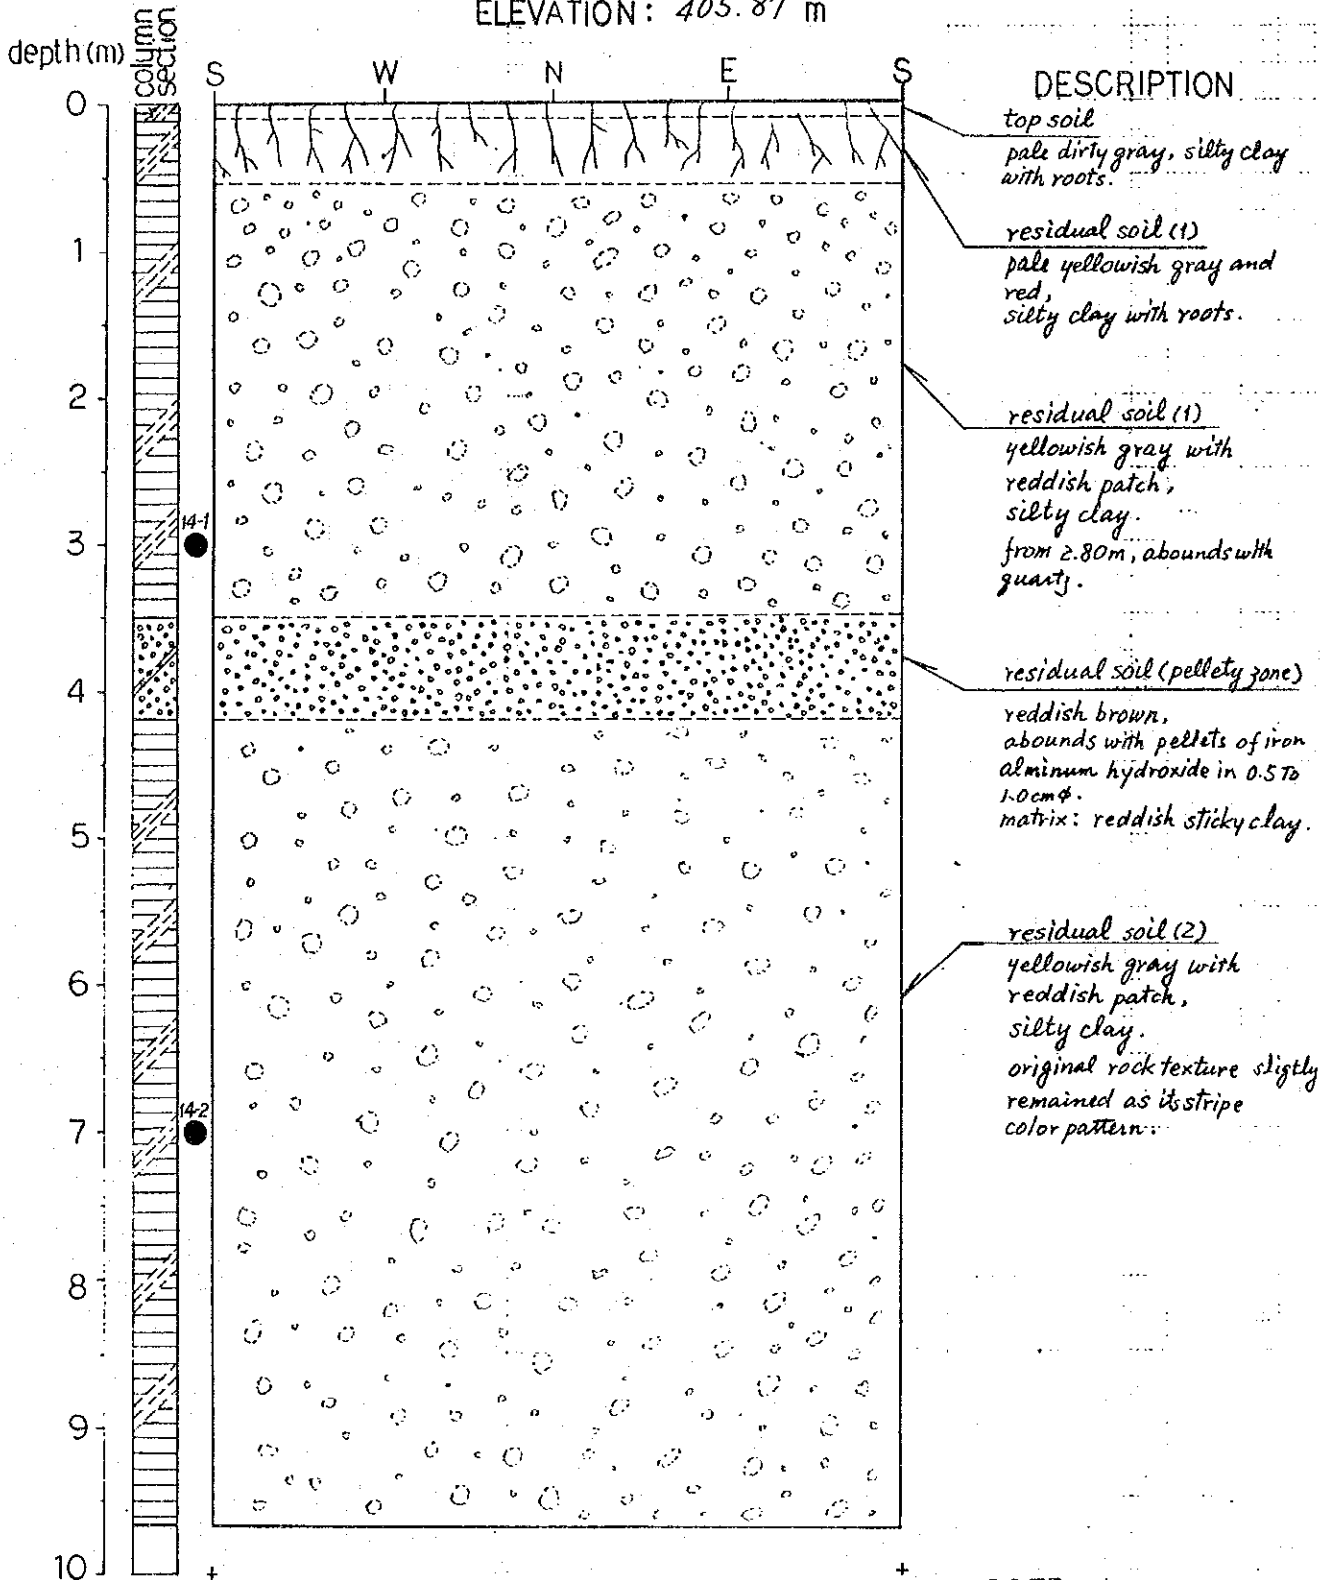 ELEVATION: 405.87 m
depth (m)
column section
S W N E S
DESCRIPTION
0
top soil
pale dirty gray, silty clay
with roots.
residual soil (1)
pale yellowish gray and
red,
silty clay with roots.
1
2
residual soil (1)
yellowish gray with
reddish patch,
silty clay.
from 2.80m, abounds with
quartz.
14-1
3
residual soil (pellety zone)
reddish brown,
abounds with pellets of iron
alminum hydroxide in 0.5 To
1.0 cm φ.
matrix: reddish sticky clay.
4
5
residual soil (2)
yellowish gray with
reddish patch,
silty clay.
original rock texture sligtly
remained as its stripe
color pattern.
6
14-2
7
8
9
10